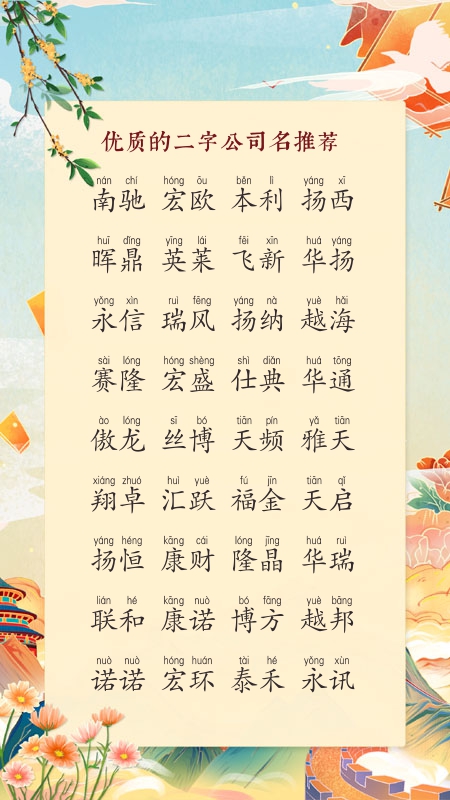 优质的二字公司名推荐
nán chí hóng ōu běn lì yáng xī
南驰 宏欧 本利 扬西
huī dǐng yīng lái fēi xīn huá yáng
晖鼎 英莱 飞新 华扬
yǒng xìn ruì fēng yáng nà yuè hǎi
永信 瑞风 扬纳 越海
sài lóng hóng shèng shì diǎn huá tōng
赛隆 宏盛 仕典 华通
ào lóng sī bó tiān pín yǎ tiān
傲龙 丝博 天频 雅天
xiáng zhuó huì yuè fú jīn tiān qǐ
翔卓 汇跃 福金 天启
yáng héng kāng cái lóng jīng huá ruì
扬恒 康财 隆晶 华瑞
lián hé kāng nuò bó fāng yuè bāng
联和 康诺 博方 越邦
nuò nuò hóng huán tài hé yǒng xùn
诺诺 宏环 泰禾 永讯